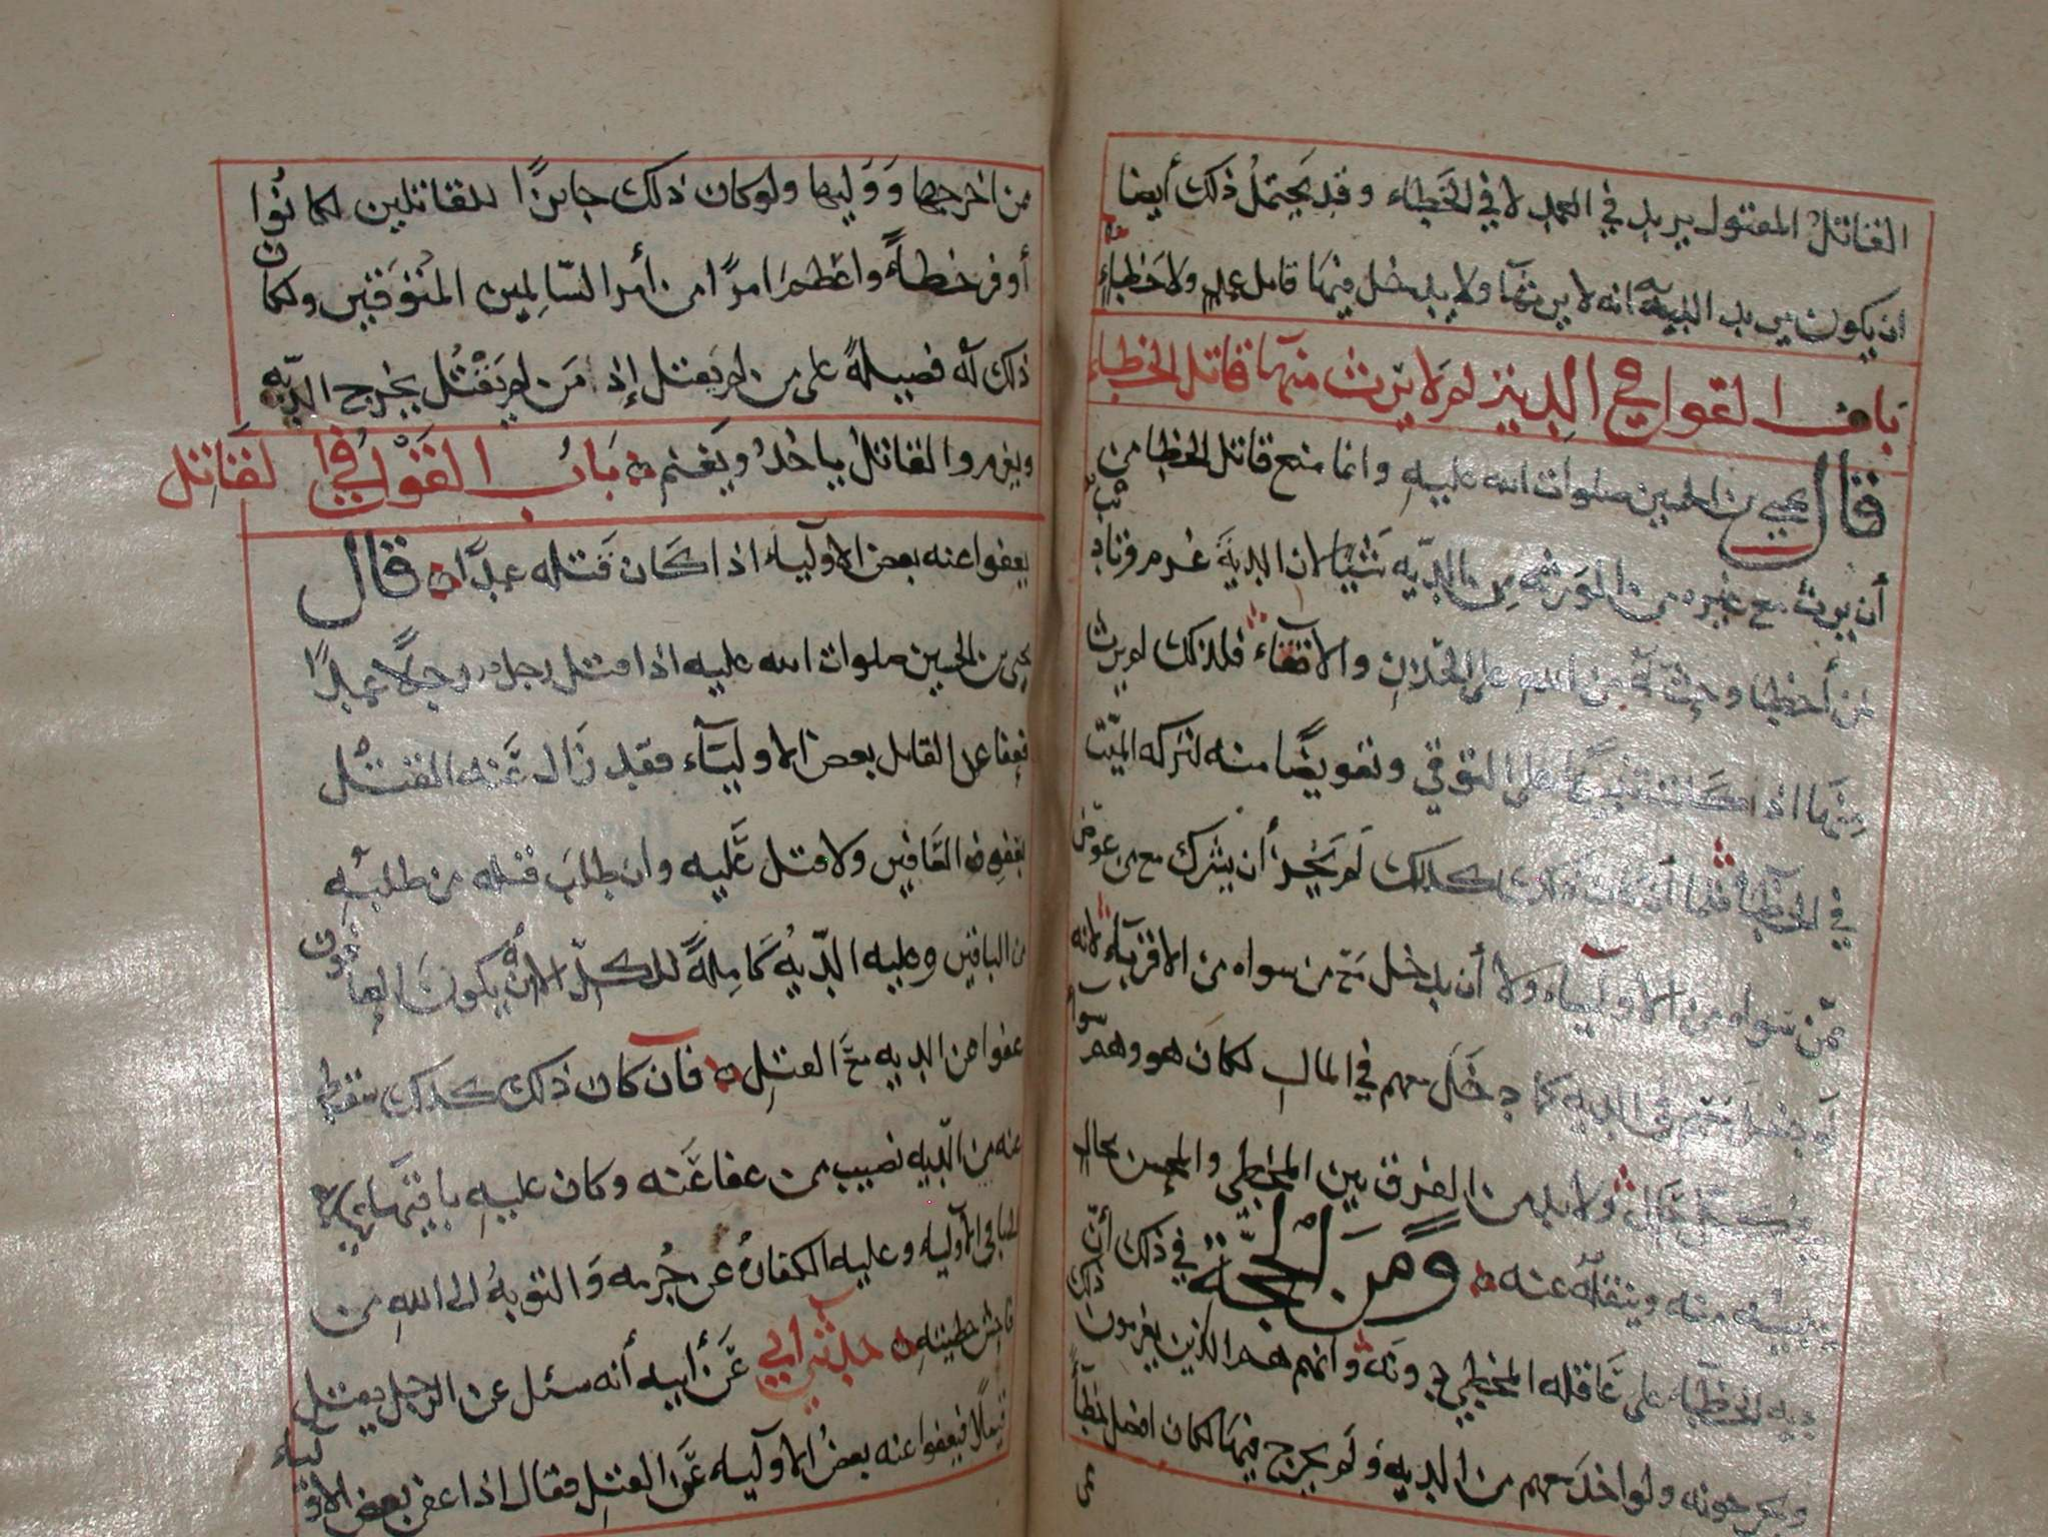 القاتل المقتول يريد في العمد لا في الخطاء وقد يحتمل ذلك أيضا
ان يكون يريد الديه انه لا يرثها ولا يدخل فيها قاتل عمد ولا خطاء
باب القول في الدية لم لا يرث منها قاتل الخطاء
قال يحيى بن الحسين صلوات الله عليه وانما منع قاتل الخطا من
أن يرث مع غيره من الورثه من الديه شيا لان الدية غرم وتاديب
لمن أخطا وحث من الله على الحذر والاتقاء فلذلك لم يرث
منها اذا كانت على التوقي وتعويضا منه لتركه الميت
في الخطأ فلما أن كذلك لم يجز أن يشرك مع من عوض
ممن سواه من الاولياء ولا أن يدخل مع من سواه من الاقرباء لانه
لو دخل معهم في الديه كما دخل معهم في المال لكان هو وهم سواء
في كل حال ولا بد من الفرق بين المخطي والمحسن بحال
منه وينقله عنه ومن الحجة في ذلك أن
ديه الخطاء على عاقله المخطي دونه وانهم هم الذين يغرمون ذلك
ويخرجونه ولو اخذ معهم من الديه ولم يخرج فيها لكان افضل خطأ
من اخرجها ووليها ولو كان ذلك جائزا للقاتلين لكانوا
أوفر خطأ واعظم امرا من أمر السالمين المتوقين ولكان
ذلك له فضيلة على من لم يقتل إذ من لم يقتل يخرج الديه
ويغرم والقاتل ياخذ ويغنم باب القول في القاتل
يعفوا عنه بعض الاولياء اذا كان قتله عمدا قال
يحيى بن الحسين صلوات الله عليه اذا قتل رجل رجلا عمدا
فعفا عن القاتل بعض الاولياء فقد زال عنه القتل
بعفو العافين ولا قتل عليه وان طلب قتله من طلبه
من الباقين وعليه الدية كاملة للكل الا أن يكون العافون
عفوا عن الديه مع القتل فان كان ذلك كذلك سقط
عنه من الديه نصيب من عفا عنه وكان عليه باقيها
لباقي الاوليه وعليه الكفارة عن جرمه والتوبة الى الله من
فاحش خطيته حدثني ابي عن أبيه أنه سئل عن الرجل يقتل
قتيلا فيعفوا عنه بعض الاوليه عن القتل فقال اذا عفى بعض الاولياء